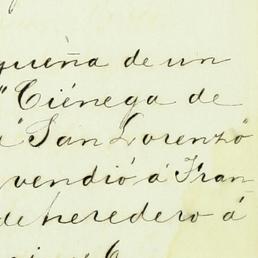 queña de un
"Ciénega de
á" San Lorenzo"
vendió á Fran-
de heredero á